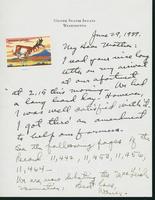 UNITED STATES SENATE
WASHINGTON
June 29, 1939.
My Dear Mother:
I had your nice long
letter on my arrival
at our apartment
at 2:15 this morning. We had
a long hard day. However,
I was well satisfied with it.
I got thru an amendment
to help our farmers.
See the following pages of the
Record 11,442, 11,453, 11,456,
11,464—
We are now debating the
nomination. Best Love,